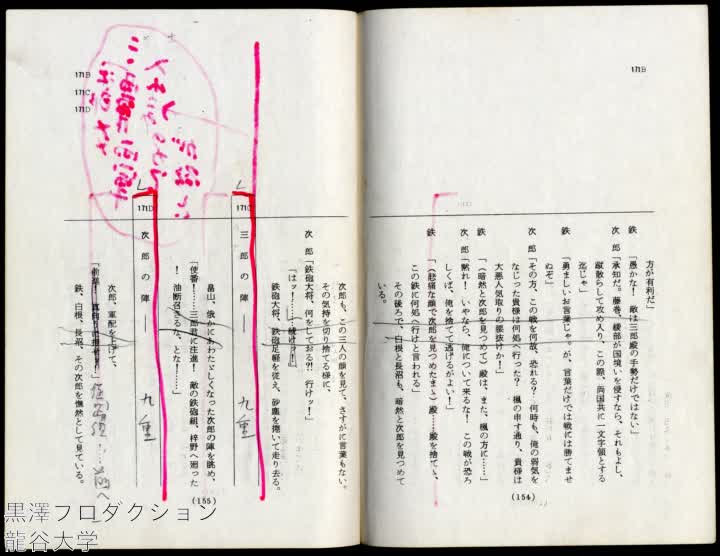 171B
171D
方が有利だ」
鉄「愚かな！ 敵は三郎殿の手勢だけではない」
次郎「承知だ。藤巻、綾部が国境いを侵すなら、それもよし、
蹴散らして攻め入り、この際、両国共に一文字領とする
迄じゃ」
鉄「勇ましいお言葉じゃ。が、言葉だけでは戦には勝てませ
ぬぞ」
次郎「その方、この戦を何故、恐れる？ 何時も、俺の弱気を
なじった貴様は何処へ行った？ 楓の申す通り、貴様は
大悪人気取りの腰抜けか！」
鉄「（暗然と次郎を見つめて）殿は、また、楓の方に……」
次郎「黙れ！ いやなら、俺について来るな！ この戦が恐ろ
しくば、俺を捨てて逃げるがよい！」
鉄「（悲痛な顔で次郎を見つめたまま）殿……殿を捨てて、
この鉄に何処へ行けと言われる」
その後ろで、白根と長沼も、暗然と次郎を見つめて
いる。
(154)
171B
171C
171D
次郎も、この三人の顔を見て、さすがに言葉もない。
その気持を切り捨てる様に、
次郎「鉄砲大将、何をしておる?! 行けッ！」
「はッ！……続けッ！」
鉄砲大将、鉄砲足軽を従え、砂塵を捲いて走り去る。
171C 三郎の陣――
九重
畠山、俄かにあわただしくなった次郎の陣を眺め、
「使番！……三郎殿に注進！ 敵の鉄砲組、梓野へ廻った
！ 油断召さるな、とな！……」
171D 次郎の陣――
九重
次郎、軍配を上げて、
鉄、白根、長沼、その次郎を憮然として見ている。
(155)
黒澤プロダクション
龍谷大学